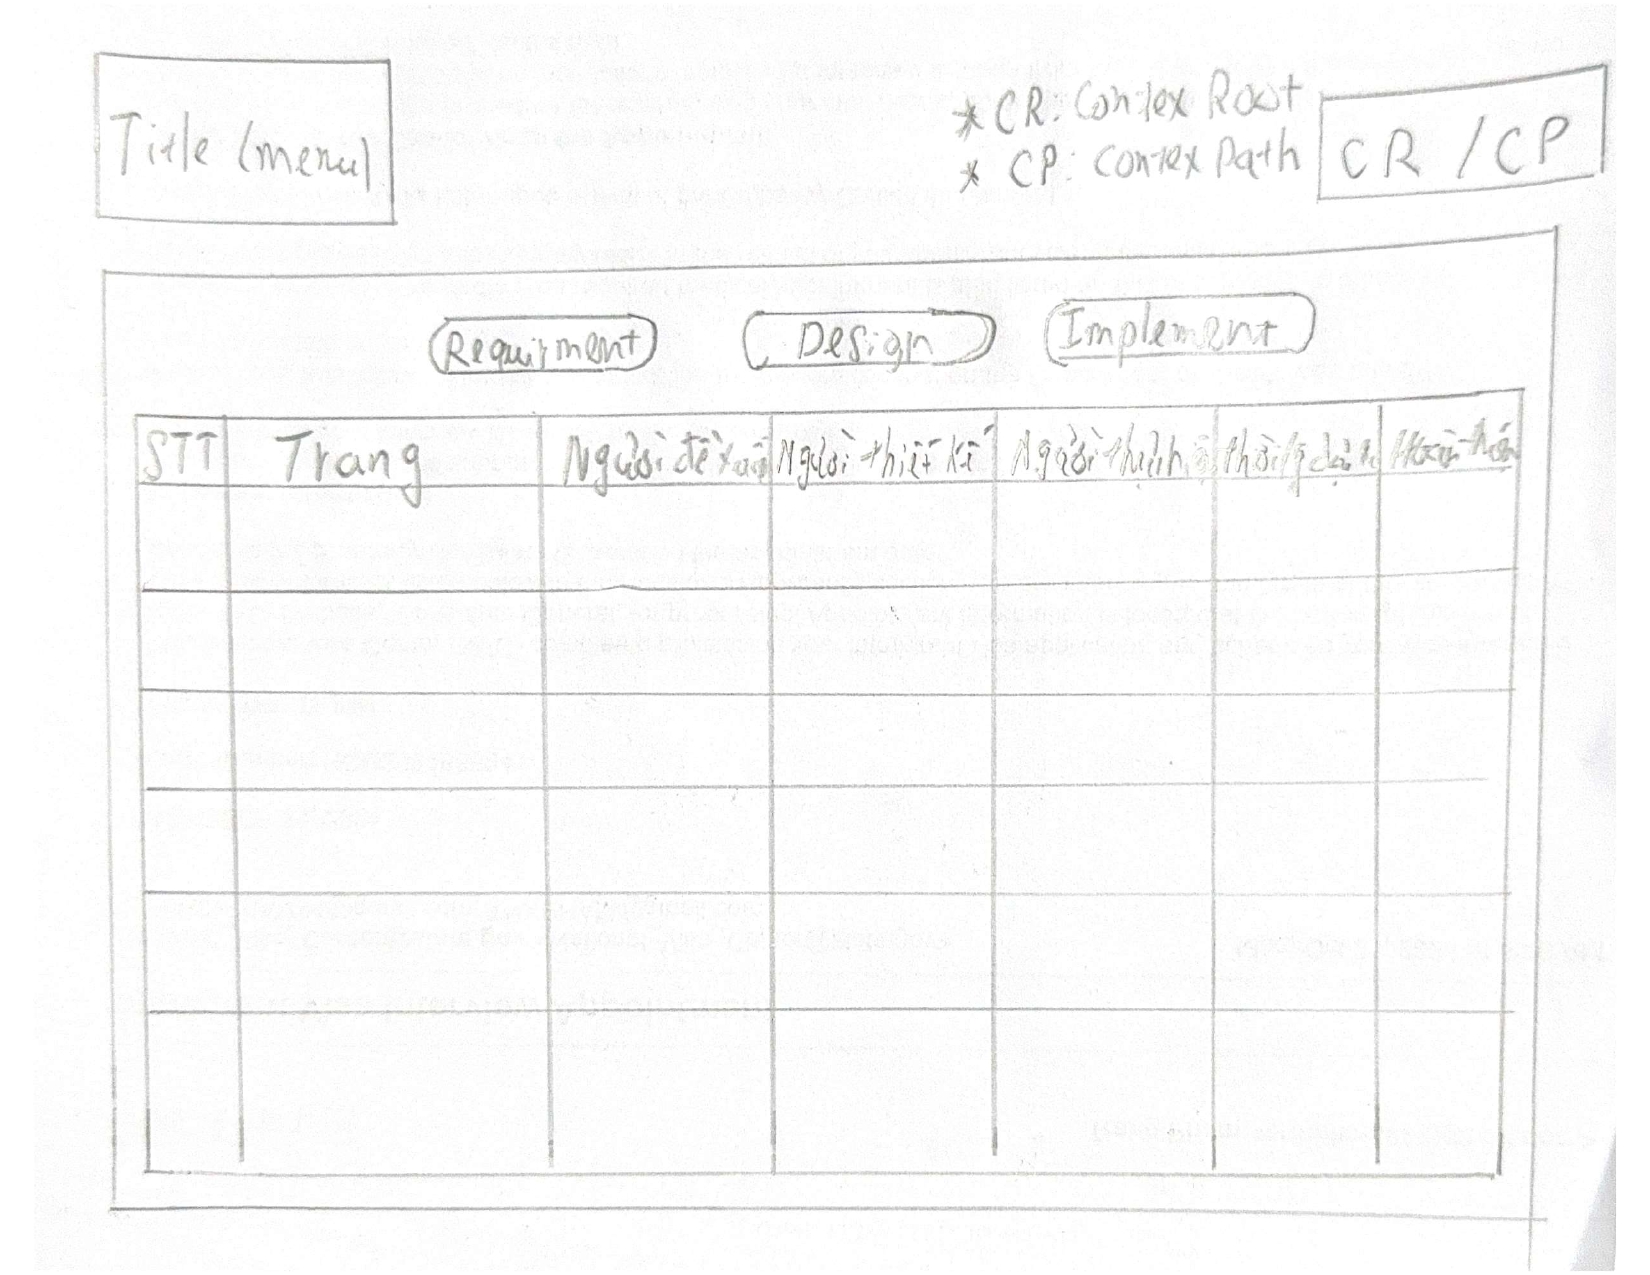 Title (menu)
* CR: Contex Root
* CP: Contex Path
CR / CP
Requirment
Design
Implement
STT
Trang
Người đề xuấ
Người thiết kế
Người thực h
thời